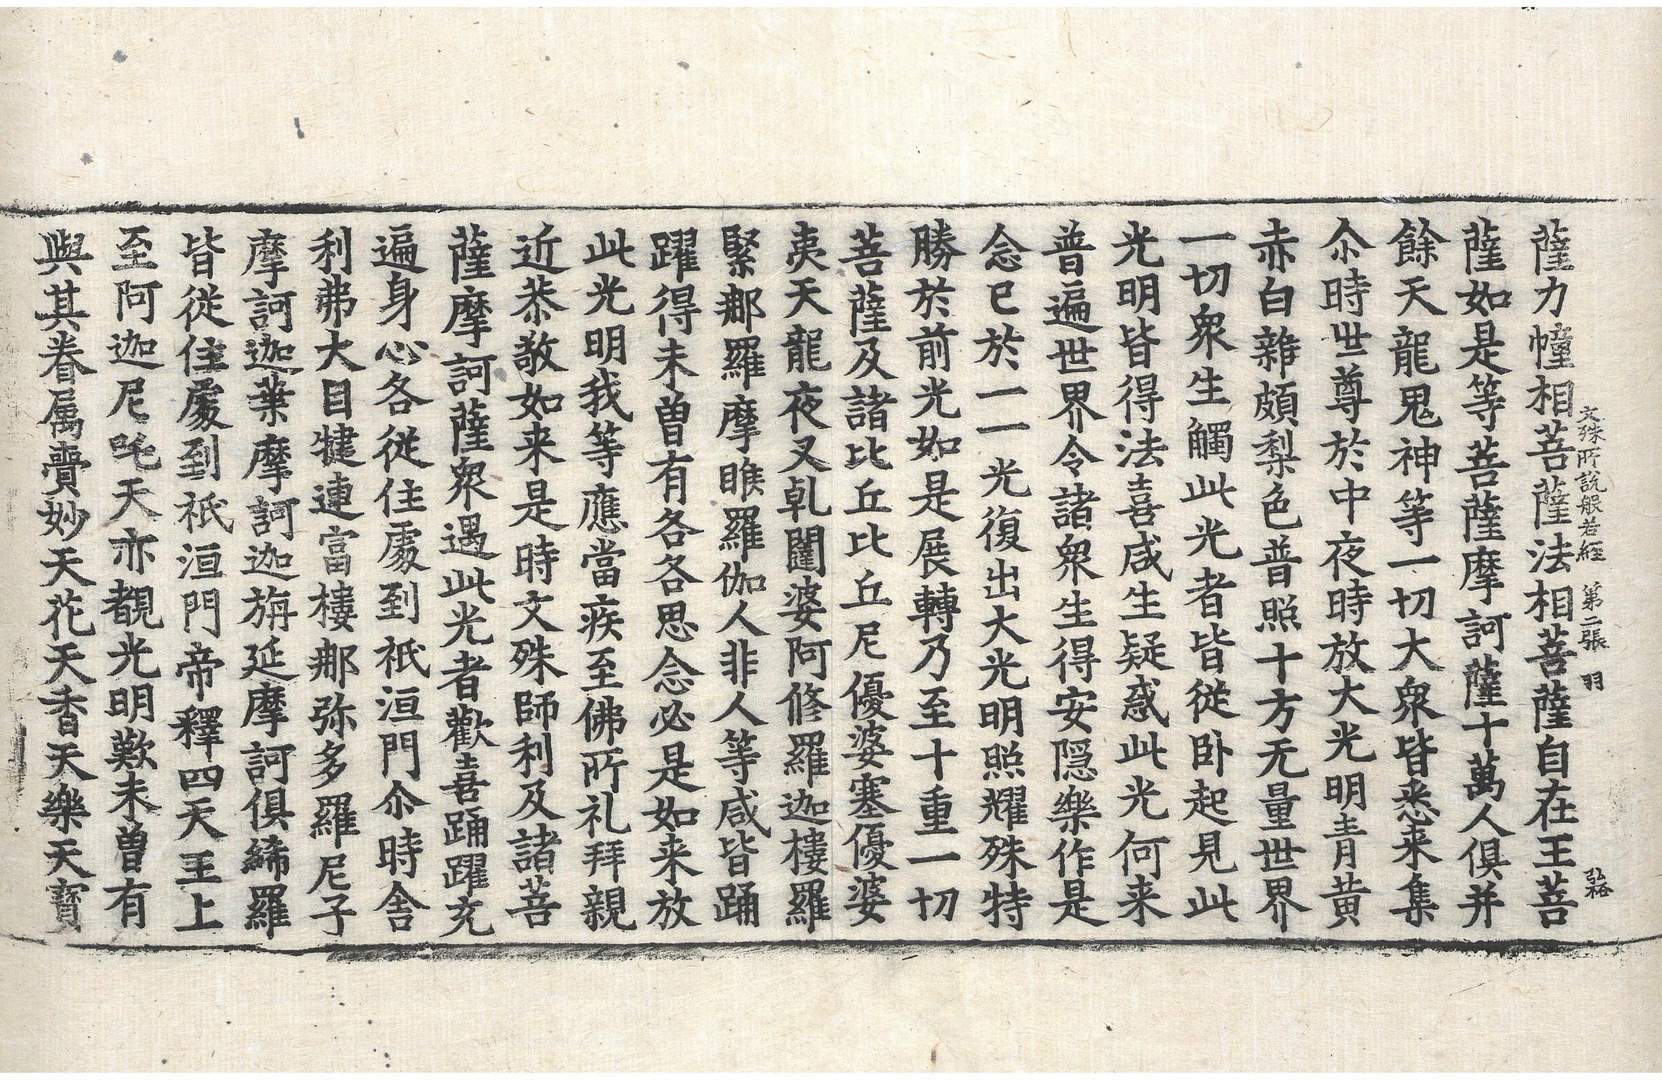 文殊所說般若經 第二張 羽 弘裕
薩力幢相菩薩法相菩薩自在王菩
薩如是等菩薩摩訶薩十萬人俱并
餘天龍鬼神等一切大衆皆悉来集
尒時世尊於中夜時放大光明青黃
赤白雜頗梨色普照十方无量世界
一切衆生觸此光者皆從卧起見此
光明皆得法喜咸生疑惑此光何来
普遍世界令諸衆生得安隠樂作是
念已於一一光復出大光明照耀殊特
勝於前光如是展轉乃至十重一切
菩薩及諸比丘比丘尼優婆塞優婆
夷天龍夜叉乹闥婆阿修羅迦樓羅
緊那羅摩睺羅伽人非人等咸皆踊
躍得未曽有各各思念必是如来放
此光明我等應當疾至佛所礼拜親
近恭敬如来是時文殊師利及諸菩
薩摩訶薩衆遇此光者歡喜踊躍充
遍身心各從住處到祇洹門尒時舎
利弗大目揵連富樓那弥多羅尼子
摩訶迦葉摩訶迦旃延摩訶俱絺羅
皆從住處到祇洹門帝釋四天王上
至阿迦尼吒天亦覩光明歎未曽有
與其眷属賷妙天花天香天樂天寳